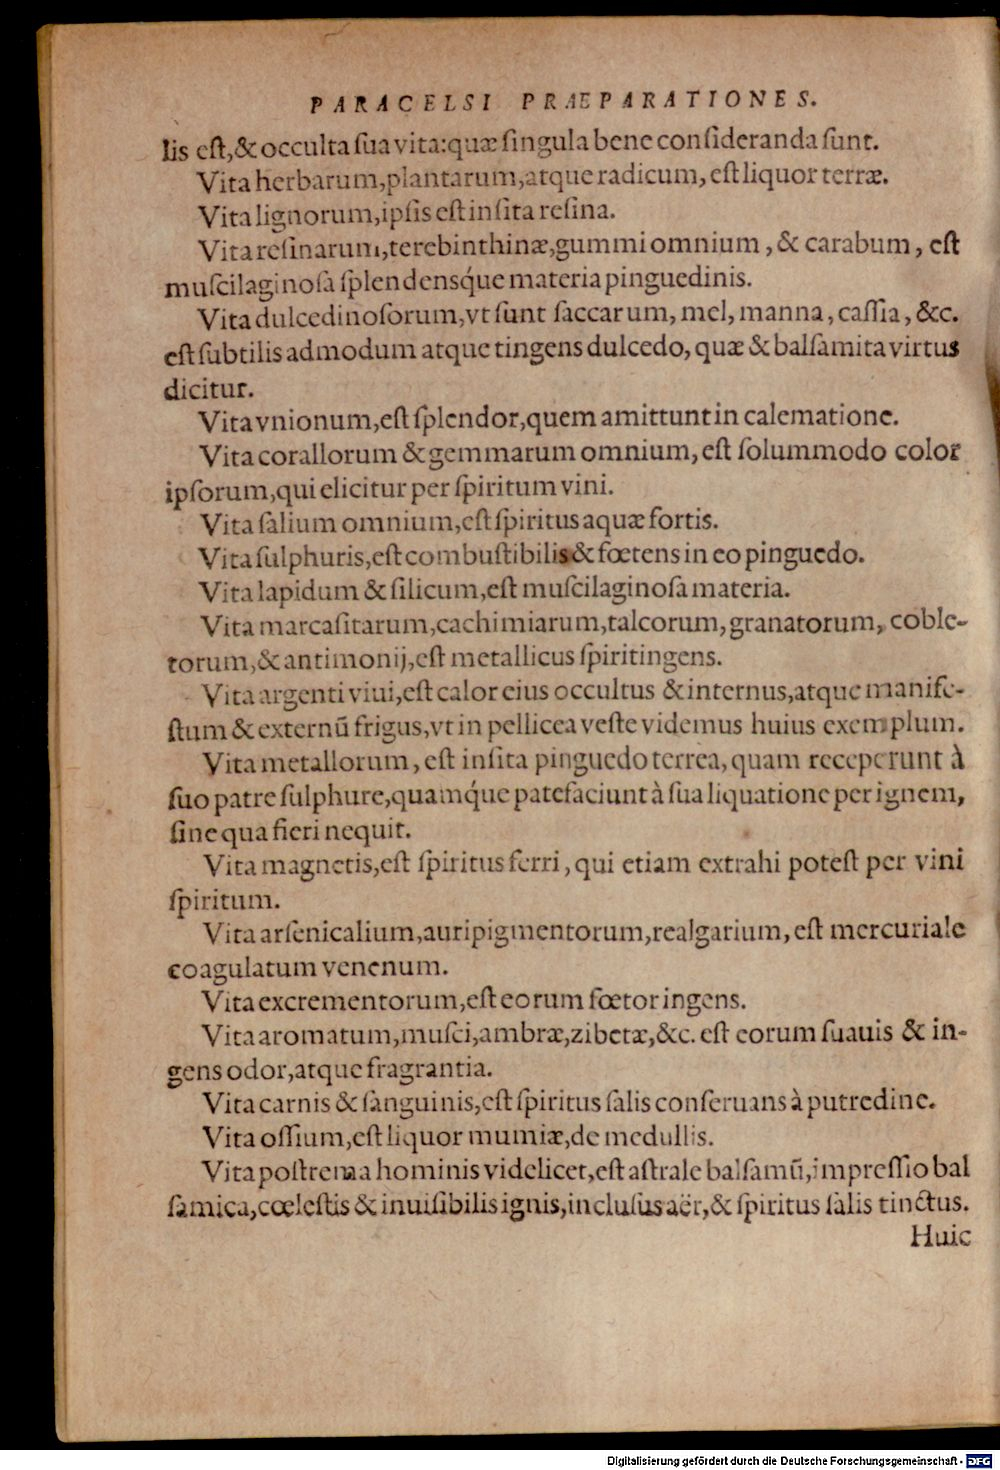 PARACELSI PRÆPARATIONES.
lis est,& occulta sua vita:quæ singula bene consideranda sunt.
Vita herbarum,plantarum,atque radicum, est liquor terræ.
Vita lignorum,ipsis est insita resina.
Vita resinarum,terebinthinæ,gummi omnium, & carabum, est
muscilaginosa splendensq́ue materia pinguedinis.
Vita dulcedinosorum,vt sunt saccarum, mel, manna, cassia, &c.
est subtilis admodum atque tingens dulcedo, quæ & balsamita virtus
dicitur.
Vita vnionum,est splendor,quem amittunt in calematione.
Vita corallorum & gemmarum omnium, est solummodo color
ipsorum,qui elicitur per spiritum vini.
Vita salium omnium,est spiritus aquæ fortis.
Vita sulphuris,est combustibilis & fœtens in eo pinguedo.
Vita lapidum & silicum,est muscilaginosa materia.
Vita marcasitarum,cachimiarum,talcorum,granatorum, coble-
torum,& antimonij,est metallicus spiritingens.
Vita argenti viui,est calor eius occultus & internus,atque manife-
stum & externũ frigus,vt in pellicea veste videmus huius exemplum.
Vita metallorum, est insita pinguedo terrea, quam receperunt à
suo patre sulphure,quamq́ue patefaciunt à sua liquatione per ignem,
sine qua fieri nequit.
Vita magnetis,est spiritus ferri, qui etiam extrahi potest per vini
spiritum.
Vita arsenicalium,auripigmentorum,realgarium, est mercuriale
coagulatum venenum.
Vita excrementorum,est eorum fœtor ingens.
Vita aromatum,musci,ambræ,zibetæ,&c. est eorum suauis & in-
gens odor,atque fragrantia.
Vita carnis & sanguinis,est spiritus salis conseruans à putredine.
Vita ossium,est liquor mumiæ,de medullis.
Vita postrema hominis videlicet,est astrale balsamũ,impressio bal
samica,cœlestis & inuisibilis ignis,inclusus aër,& spiritus salis tinctus.
Huic
Digitalisierung gefördert durch die Deutsche Forschungsgemeinschaft - DFG